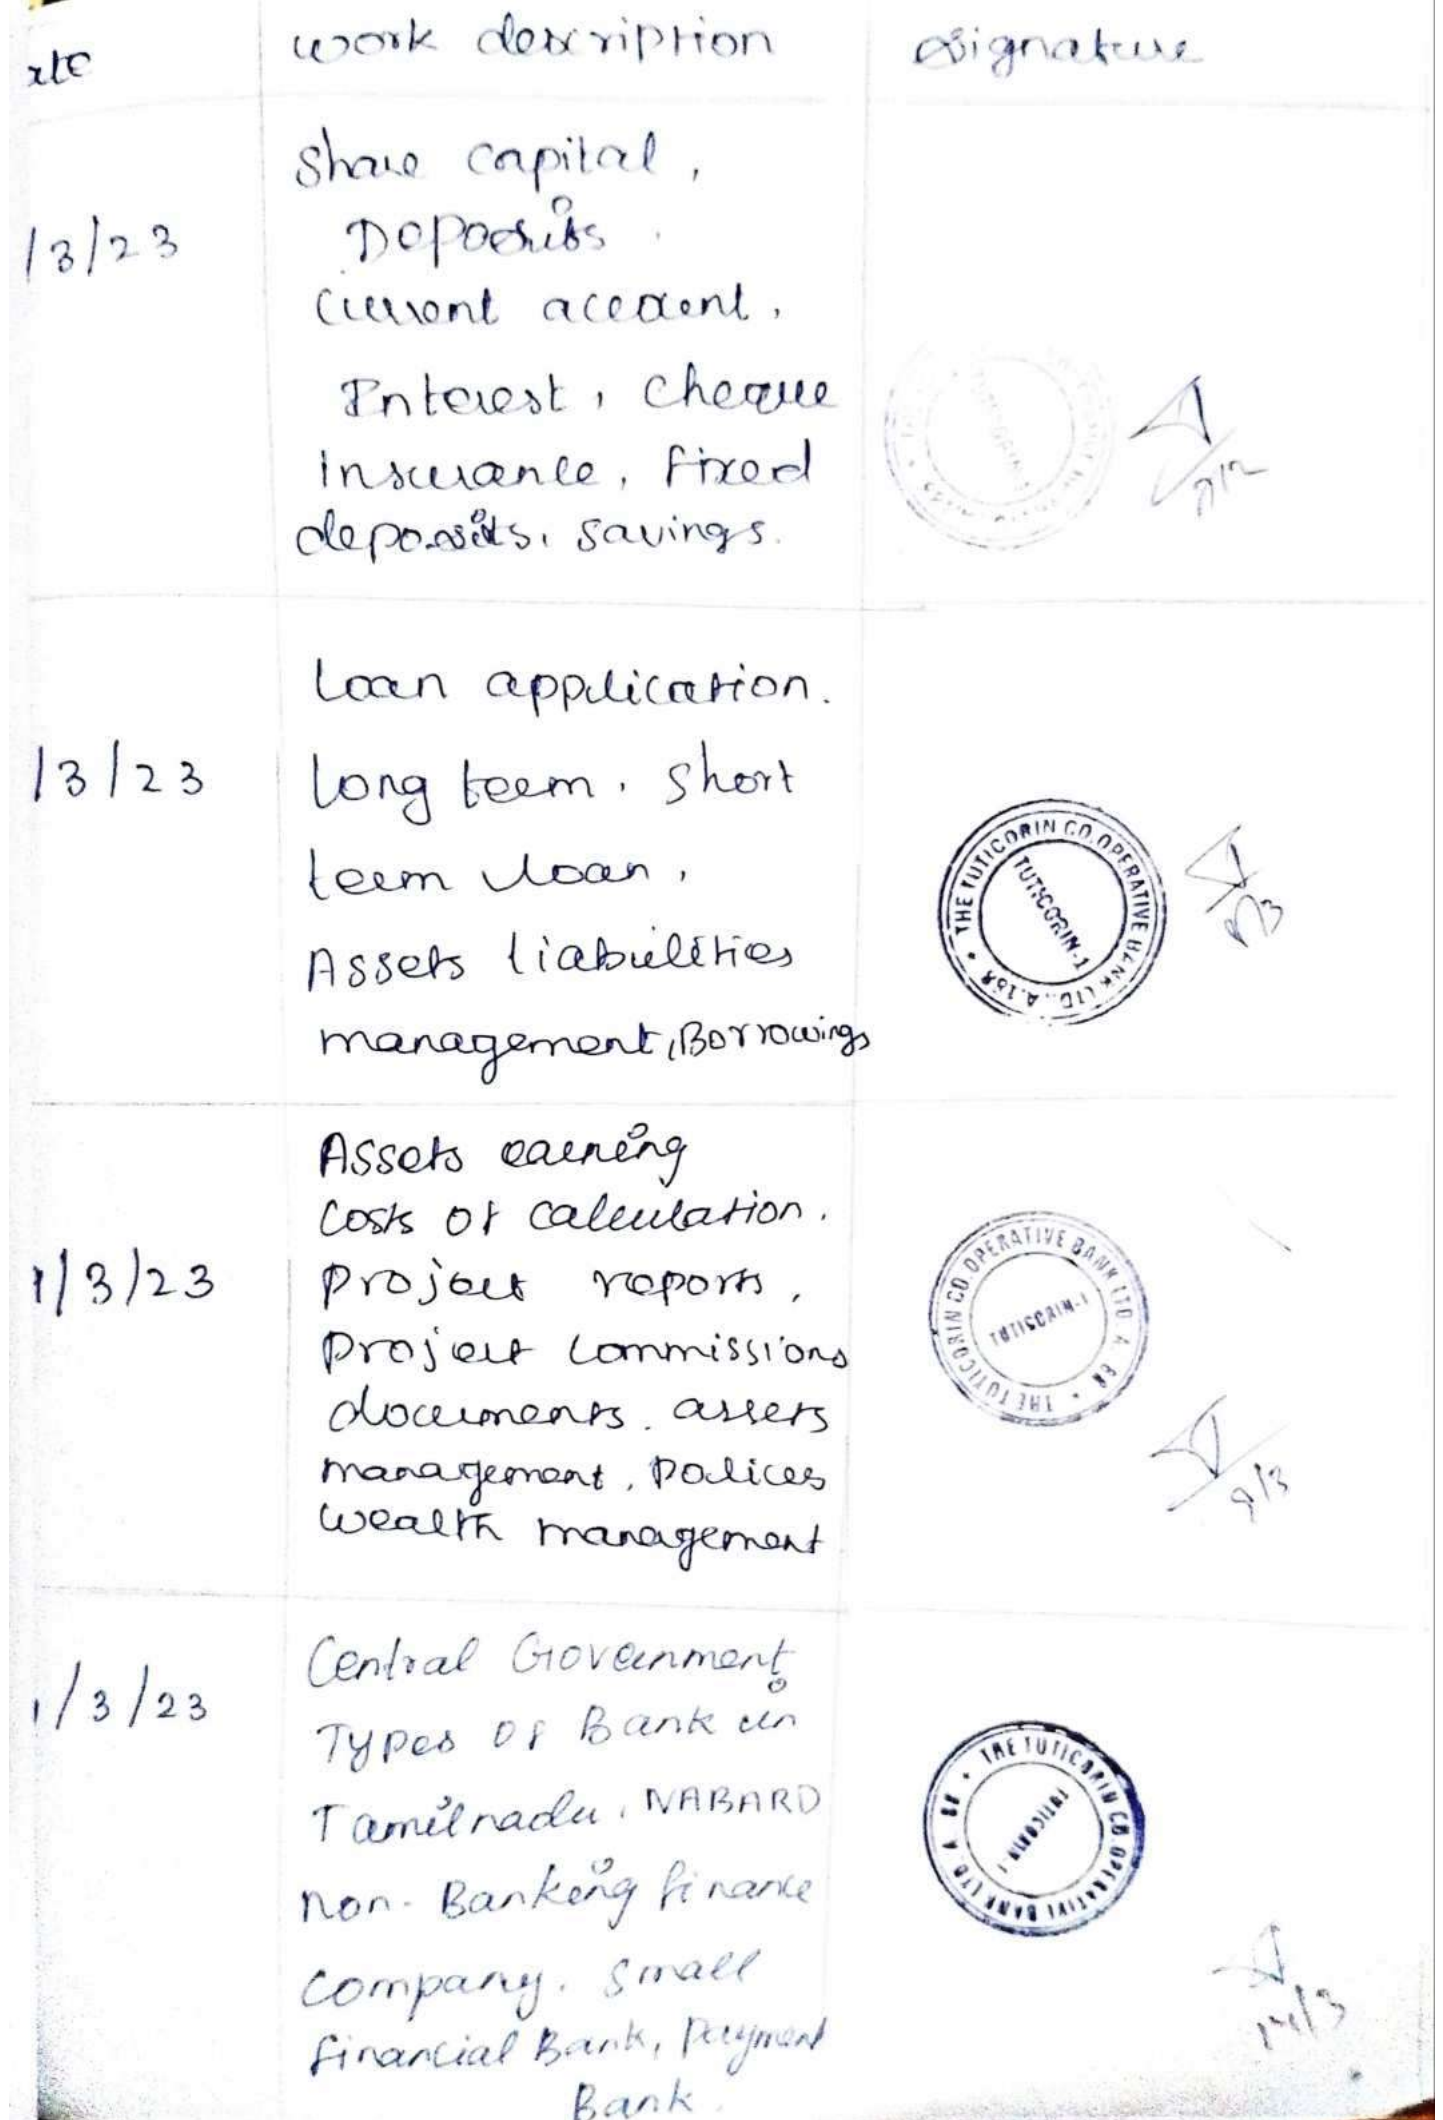 work description
Signature
/3/23
Share capital,
Deposits.
Current account,
Interest, cheque
Insurance, fixed
deposits, savings.
Loan application.
/3/23
Long term, short
term loan,
Assets liabilities
management, Borrowings
THE TUTICORIN CO.OPERATIVE BANK LTD., A.168
TUTICORIN-1
8/3
Assets earning
costs of calculation.
1/3/23
Project reports,
Project commissions
documents. assets
management, polices
wealth management
THE TUTICORIN CO.OPERATIVE BANK LTD. A. 68
TUTICORIN-1
9/3
Central Government
1/3/23
Types of Bank in
Tamilnadu, NABARD
Non-Banking finance
company. small
financial Bank, Payment
Bank.
THE TUTICORIN CO.OPERATIVE BANK LTD. A 68
TUTICORIN-1